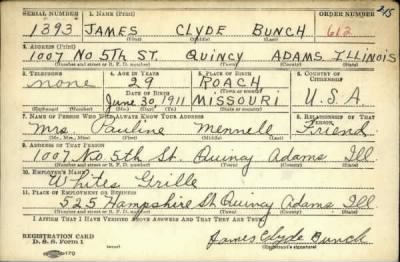 SERIAL NUMBER 1. NAME (Print) ORDER NUMBER 215
1393 JAMES CLYDE BUNCH 612
(First) (Middle) (Last)
2. ADDRESS (Print)
1007 NO 5TH ST. QUINCY ADAMS ILLINOIS
(Number and street or R. F. D. number) (Town) (County) (State)
3. TELEPHONE 4. AGE IN YEARS 5. PLACE OF BIRTH 6. COUNTRY OF CITIZENSHIP
none 29 ROACH
DATE OF BIRTH (Town or county)
June 30, 1911 MISSOURI U.S.A.
(Exchange) (Number) (Mo.) (Day) (Yr.) (State or country)
7. NAME OF PERSON WHO WILL ALWAYS KNOW YOUR ADDRESS 8. RELATIONSHIP OF THAT PERSON
Mrs. Pauline Mennell Friend
(Mr., Mrs., Miss) (First) (Middle) (Last)
9. ADDRESS OF THAT PERSON
1007 No 5th St. Quincy Adams Ill.
(Number and street or R. F. D. number) (Town) (County) (State)
10. EMPLOYER'S NAME
Whites Grille
11. PLACE OF EMPLOYMENT OR BUSINESS
525 Hampshire St Quincy Adams Ill
(Number and street or R. F. D. number) (Town) (County) (State)
I AFFIRM THAT I HAVE VERIFIED ABOVE ANSWERS AND THAT THEY ARE TRUE.
REGISTRATION CARD
D. S. S. Form 1 James Clyde Bunch
(Registrant's signature)